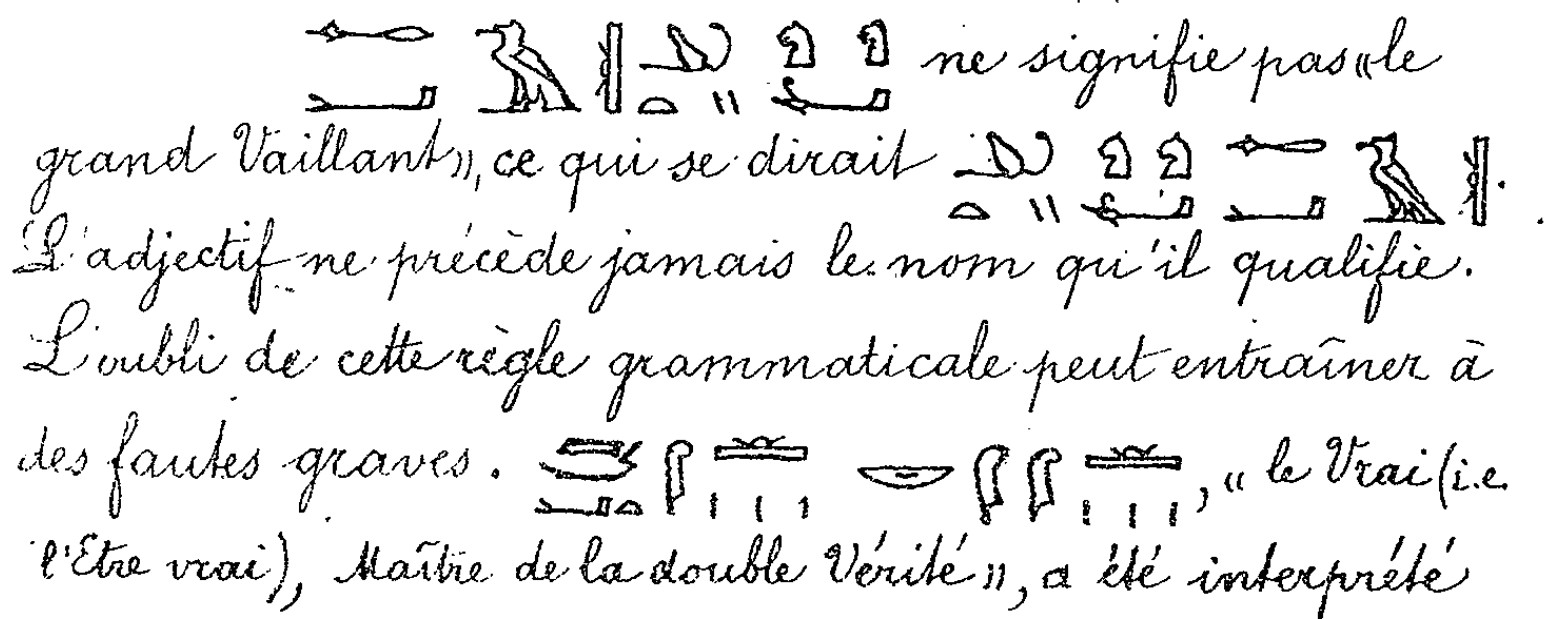 ne signifie pas «le
grand Vaillant», ce qui se dirait .
L'adjectif ne précède jamais le nom qu'il qualifie.
L'oubli de cette règle grammaticale peut entraîner à
des fautes graves. , «le Vrai (i.e.
l'Etre vrai), Maître de la double Vérité», a été interprété